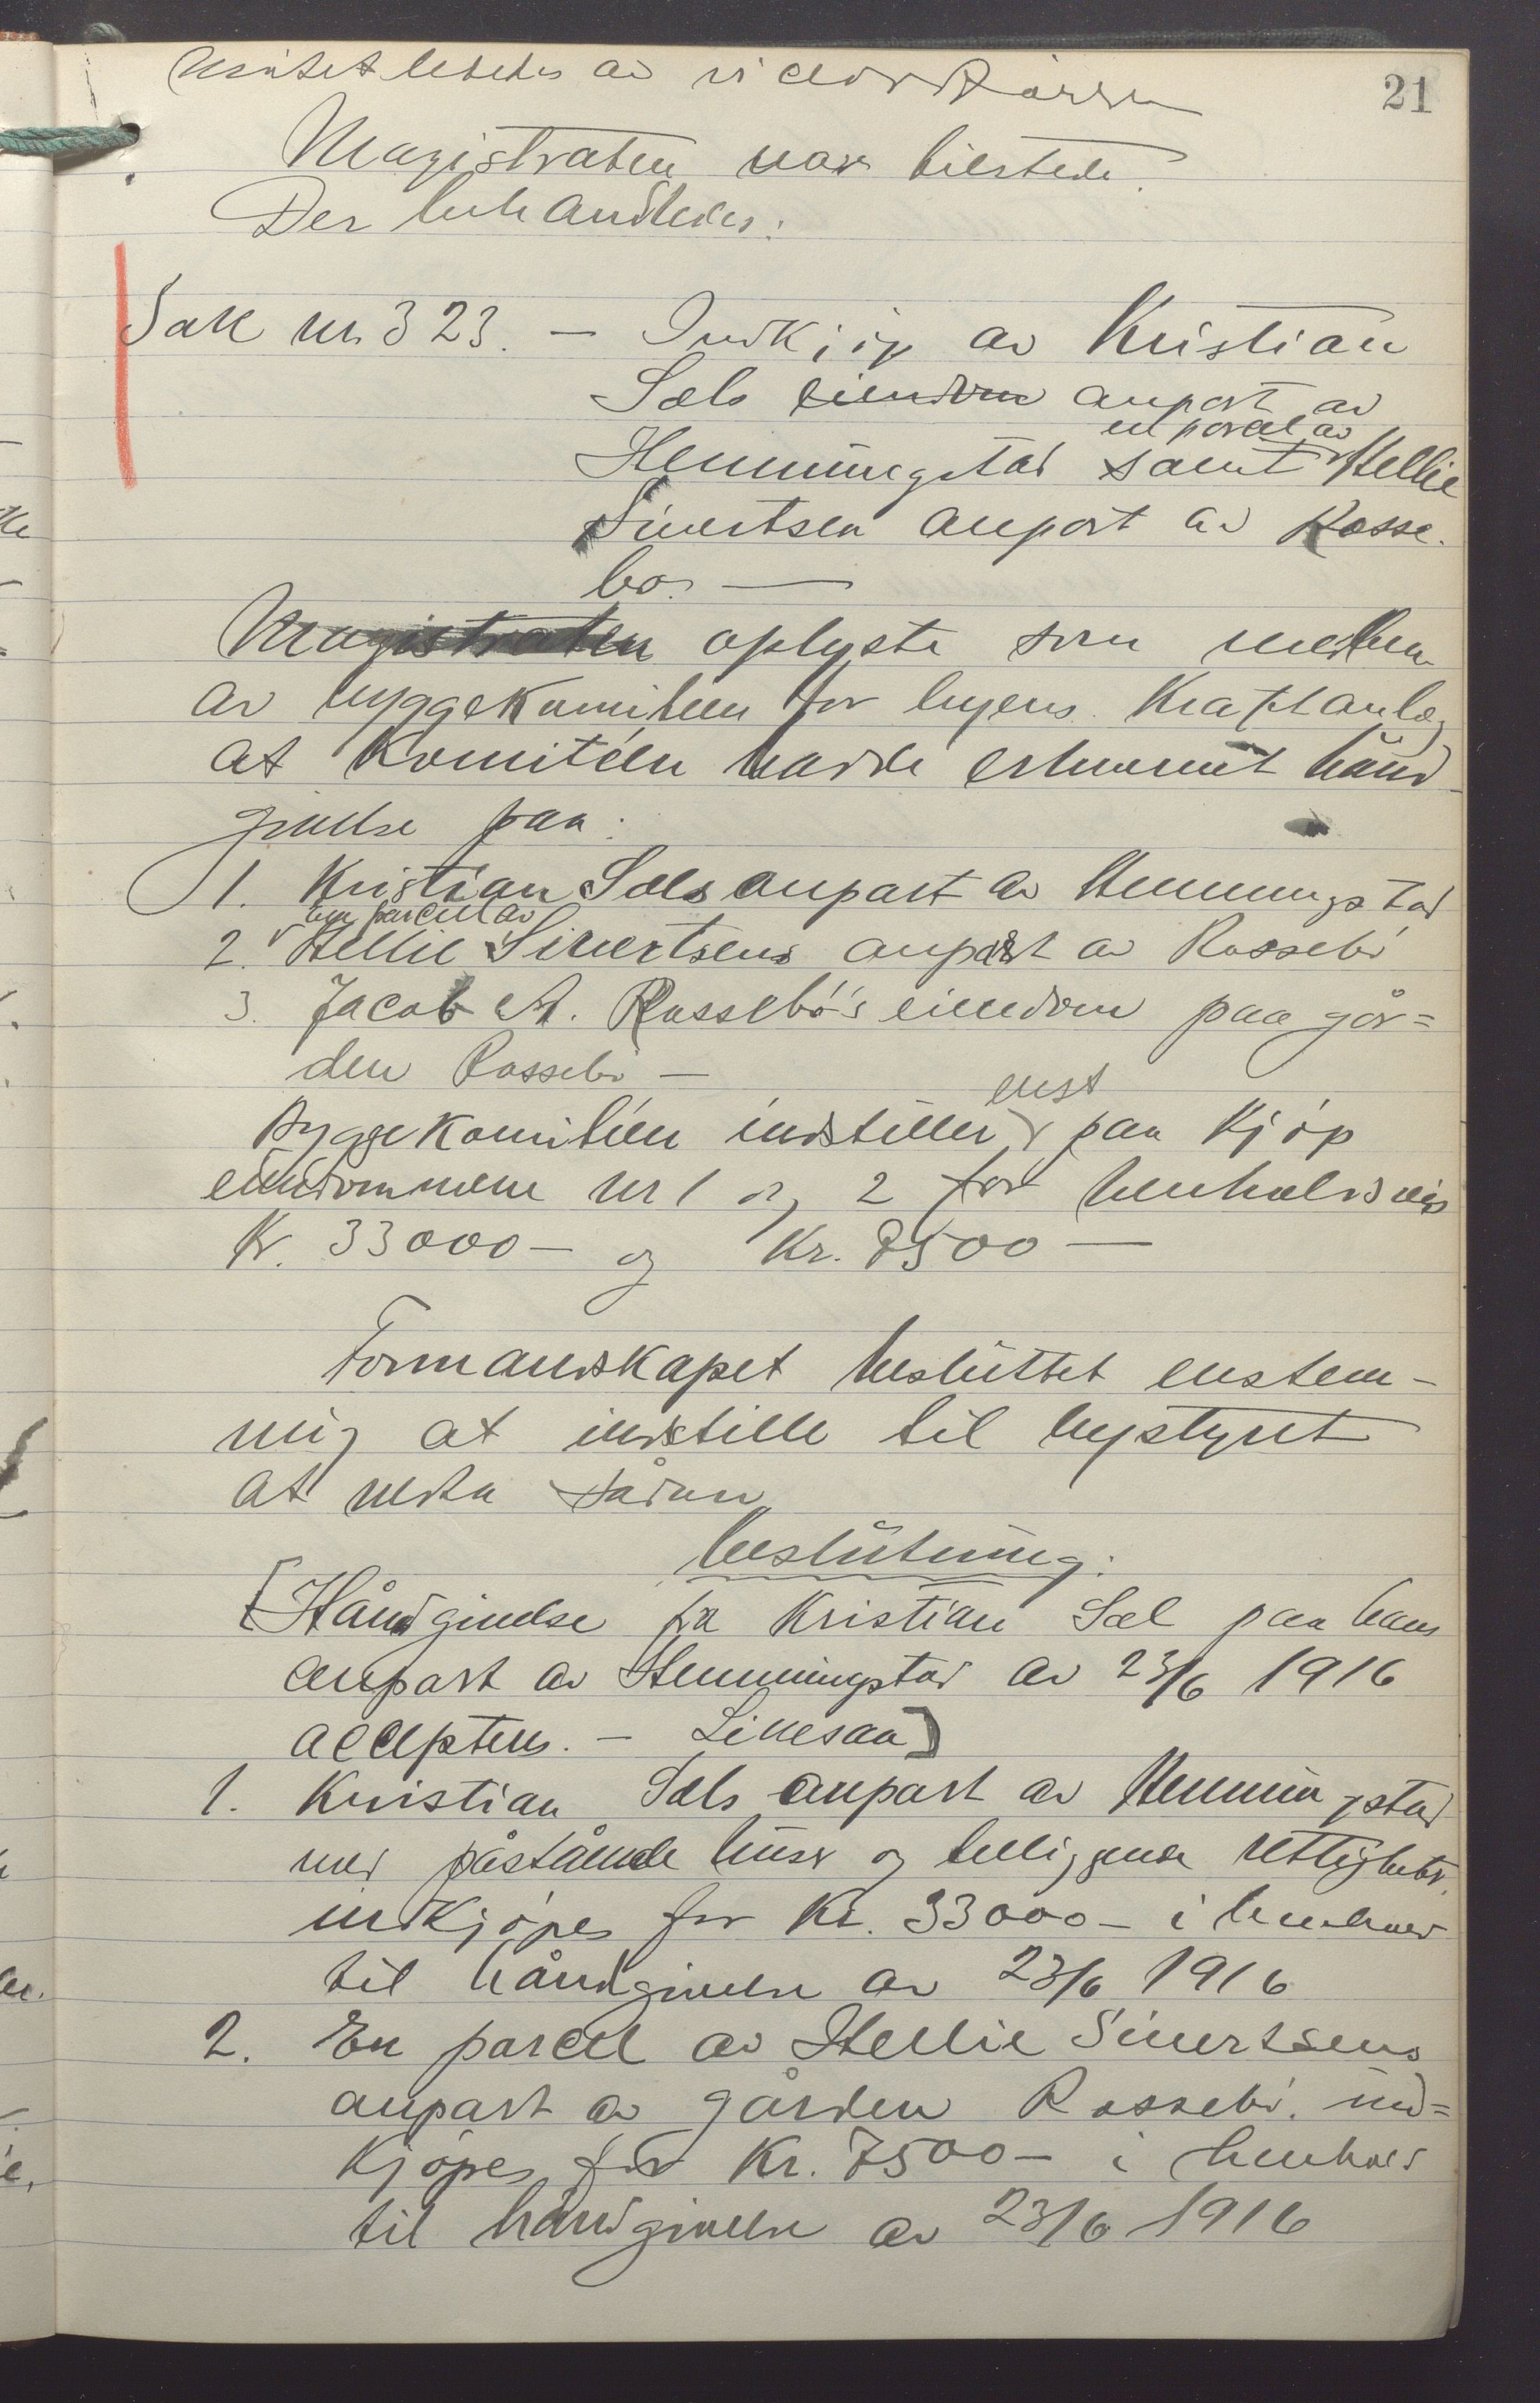 21
Møtet lededes av viceordføreren
Magistraten var tilstede.
Der behandledes:
Sak nr. 323. — Indkjöp av Kristian
Sæls eiendom anpart av
en parcel av
Hemmingstad samt Hellie
Sivertsen anpart av Rosse-
bö. —
Magistraten oplyste som medlem
av byggekomiteen for byens kraftanlæg
at komitéen hadde erhvervet hånd-
givelse paa:
1. Kristian Sæls anpart av Hemmingstad
en parcel av
2. Hellie Sivertsens anpart av Rossebö
3. Jacob A. Rossebö's eiendom paa går=
den Rossebö —
enst
Byggekomitéen indstiller paa kjöp
eiendommene nr 1 og 2 for henholdsvis
Kr. 33000 — og Kr. 7500 —
Formandskapet besluttet enstem-
mig at indstille til bystyret
at vedta sådan
beslutning:
[Håndgivelse fra Kristian Sæl paa hans
anpart av Hemmingstad av 23/6 1916
accepteres. — Likesaa]
1. Kristian Sæls anpart av Hemmingstad
med påstående huser og tilliggende rettigheter
indkjöpes for Kr. 33000 — i henhold
til håndgivelse av 23/6 1916
2. En parcel av Hellie Sivertsens
anpart av gården Rossebö ind=
kjöpes for Kr. 7500 — i henhold
til håndgivelse av 23/6 1916